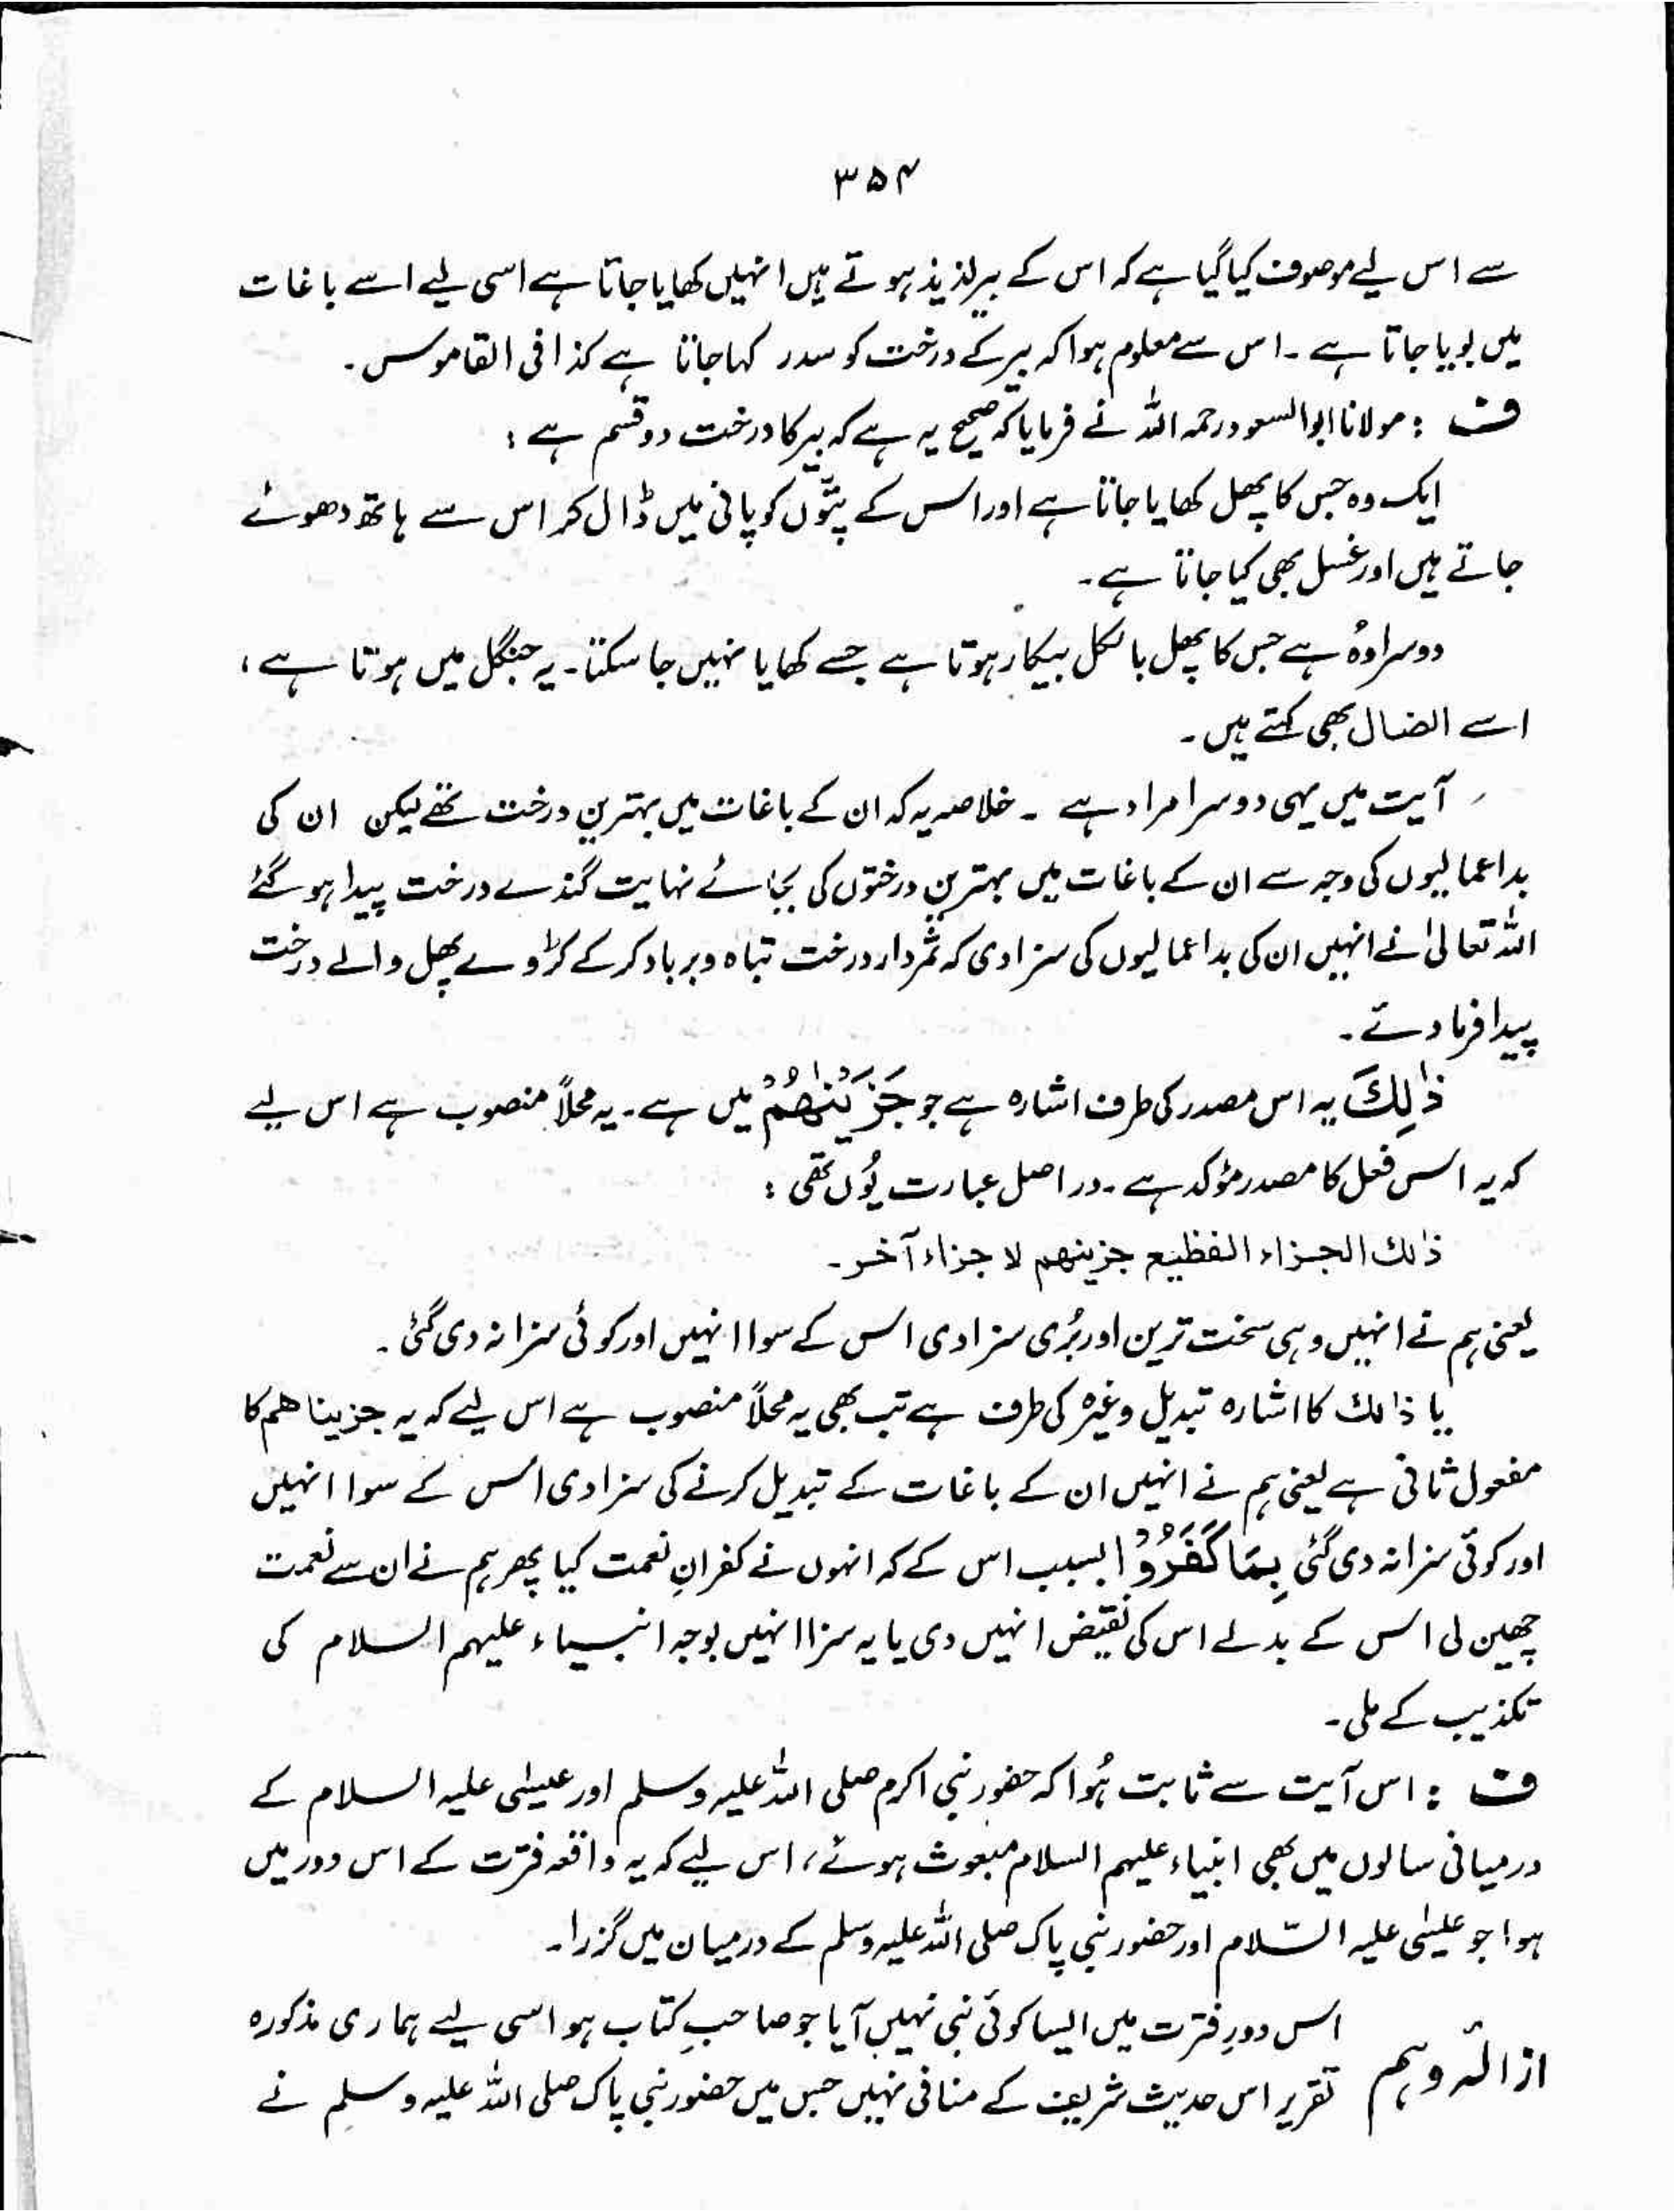 ۳۵۴
سے اس لیے موصوف کیا گیا ہے کہ اس کے بیر لذیذ ہوتے ہیں انہیں کھایا جاتا ہے اسی لیے اسے باغات
میں بویا جاتا ہے ۔ اس سے معلوم ہوا کہ بیر کے درخت کو سدر کہا جاتا ہے کذا فی القاموس ۔
ف : مولانا ابو السعود رحمہ اللہ نے فرمایا کہ صحیح یہ ہے کہ بیر کا درخت دو قسم ہے :
ایک وہ جس کا پھل کھایا جاتا ہے اور اس کے پتّوں کو پانی میں ڈال کر اس سے ہاتھ دھوئے
جاتے ہیں اور غسل بھی کیا جاتا ہے ۔
دوسرا وُہ ہے جس کا پھل بالکل بیکار ہوتا ہے جسے کھایا نہیں جا سکتا ۔ یہ جنگل میں ہوتا ہے ،
اسے الضال بھی کہتے ہیں ۔
آیت میں یہی دوسرا مراد ہے ۔ خلاصہ یہ کہ ان کے باغات میں بہترین درخت تھے لیکن ان کی
بداعمالیوں کی وجہ سے ان کے باغات میں بہترین درختوں کی بجائے نہایت گندے درخت پیدا ہو گئے
اللہ تعالیٰ نے انہیں ان کی بداعمالیوں کی سزا دی کہ ثمردار درخت تباہ و برباد کر کے کڑوے پھل والے درخت
پیدا فرما دئے ۔
ذٰلِكَ یہ اس مصدر کی طرف اشارہ ہے جو جَزَيْنٰهُمْ میں ہے ۔ یہ محلاً منصوب ہے اس لیے
کہ یہ اس فعل کا مصدر مؤکد ہے ۔ در اصل عبارت یُوں تھی :
ذٰلك الجزاء الفظیع جزینٰھم لا جزاء آخر ۔
یعنی ہم نے انہیں وہی سخت ترین اور بُری سزا دی اس کے سوا انہیں اور کوئی سزا نہ دی گئی ۔
یا ذالك کا اشارہ تبدیل وغیرہ کی طرف ہے تب بھی یہ محلاً منصوب ہے اس لیے کہ یہ جزیناھم کا
مفعول ثانی ہے یعنی ہم نے انہیں ان کے باغات کے تبدیل کرنے کی سزا دی اس کے سوا انہیں
اور کوئی سزا نہ دی گئی بِمَا كَفَرُوْا بسبب اس کے کہ انہوں نے کفرانِ نعمت کیا پھر ہم نے ان سے نعمت
چھین لی اس کے بدلے اس کی نقیض انہیں دی یا یہ سزا انہیں بوجہ انبیاء علیہم السلام کی
تکذیب کے ملی ۔
ف : اس آیت سے ثابت ہُوا کہ حضور نبی اکرم صلی اللہ علیہ وسلم اور عیسٰی علیہ السلام کے
درمیانی سالوں میں بھی انبیاء علیہم السلام مبعوث ہوئے ، اس لیے کہ یہ واقعہ فترت کے اس دور میں
ہوا جو عیسٰی علیہ السّلام اور حضور نبی پاک صلی اللہ علیہ وسلم کے درمیان میں گزرا ۔
ازالۂ وہم
اس دورِ فترت میں ایسا کوئی نبی نہیں آیا جو صاحبِ کتاب ہو اسی لیے ہماری مذکورہ
تقریر اس حدیث شریف کے منافی نہیں جس میں حضور نبی پاک صلی اللہ علیہ وسلم نے